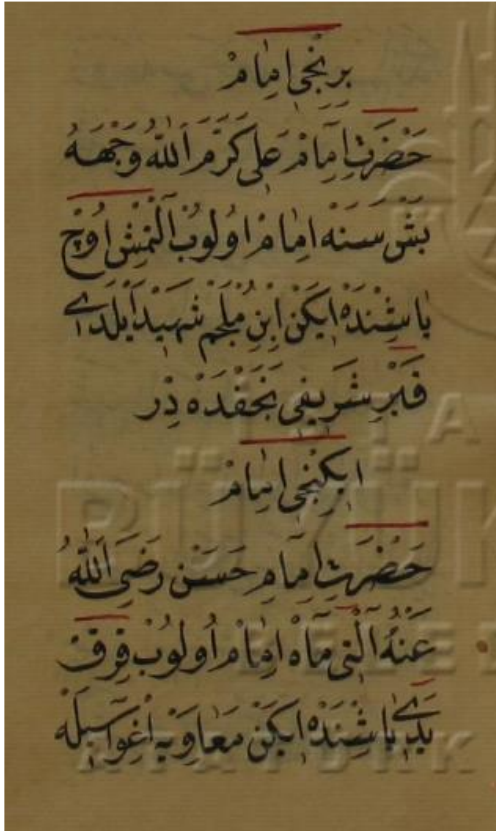 بِرِنْجِی اِمَامْ
حَضْرَتِ اِمَامْ عَلِی كَرَّمَ اَللّٰهُ وَجْهَهُ
بَشْ سَنَه اِمَامْ اوُلوُبْ اَلْتْمِشْ اوُچْ
یَاشِنْدَهْ اِیكَنْ اِبْنِ مُلْجَمْ شَهِیدْ اَیْلَدِی
قَبْرِ شَرِیفِی نَجَفْدَهْ دِرْ
اِیكِنْجِی اِمَامْ
حَضْرَتِ اِمَامِ حَسَنْ رَضِیَ اَللّٰهُ
عَنْهُ اَلْتِی مَاهْ اِمَامْ اُولُوبْ قِرْقْ
یَدِی یَاشِنْدَهْ اِیكَنْ مَعَاوِیَه اِغْوَاسِیلَهْ